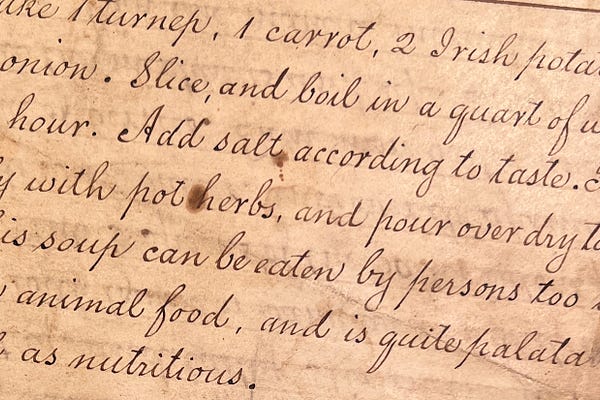 ake 1 turnep, 1 carrot, 2 Irish pota
onion. Slice, and boil in a quart of
hour. Add salt according to taste.
with pot herbs, and pour over dry to
is soup can be eaten by persons too
animal food, and is quite palata
as nutritious.